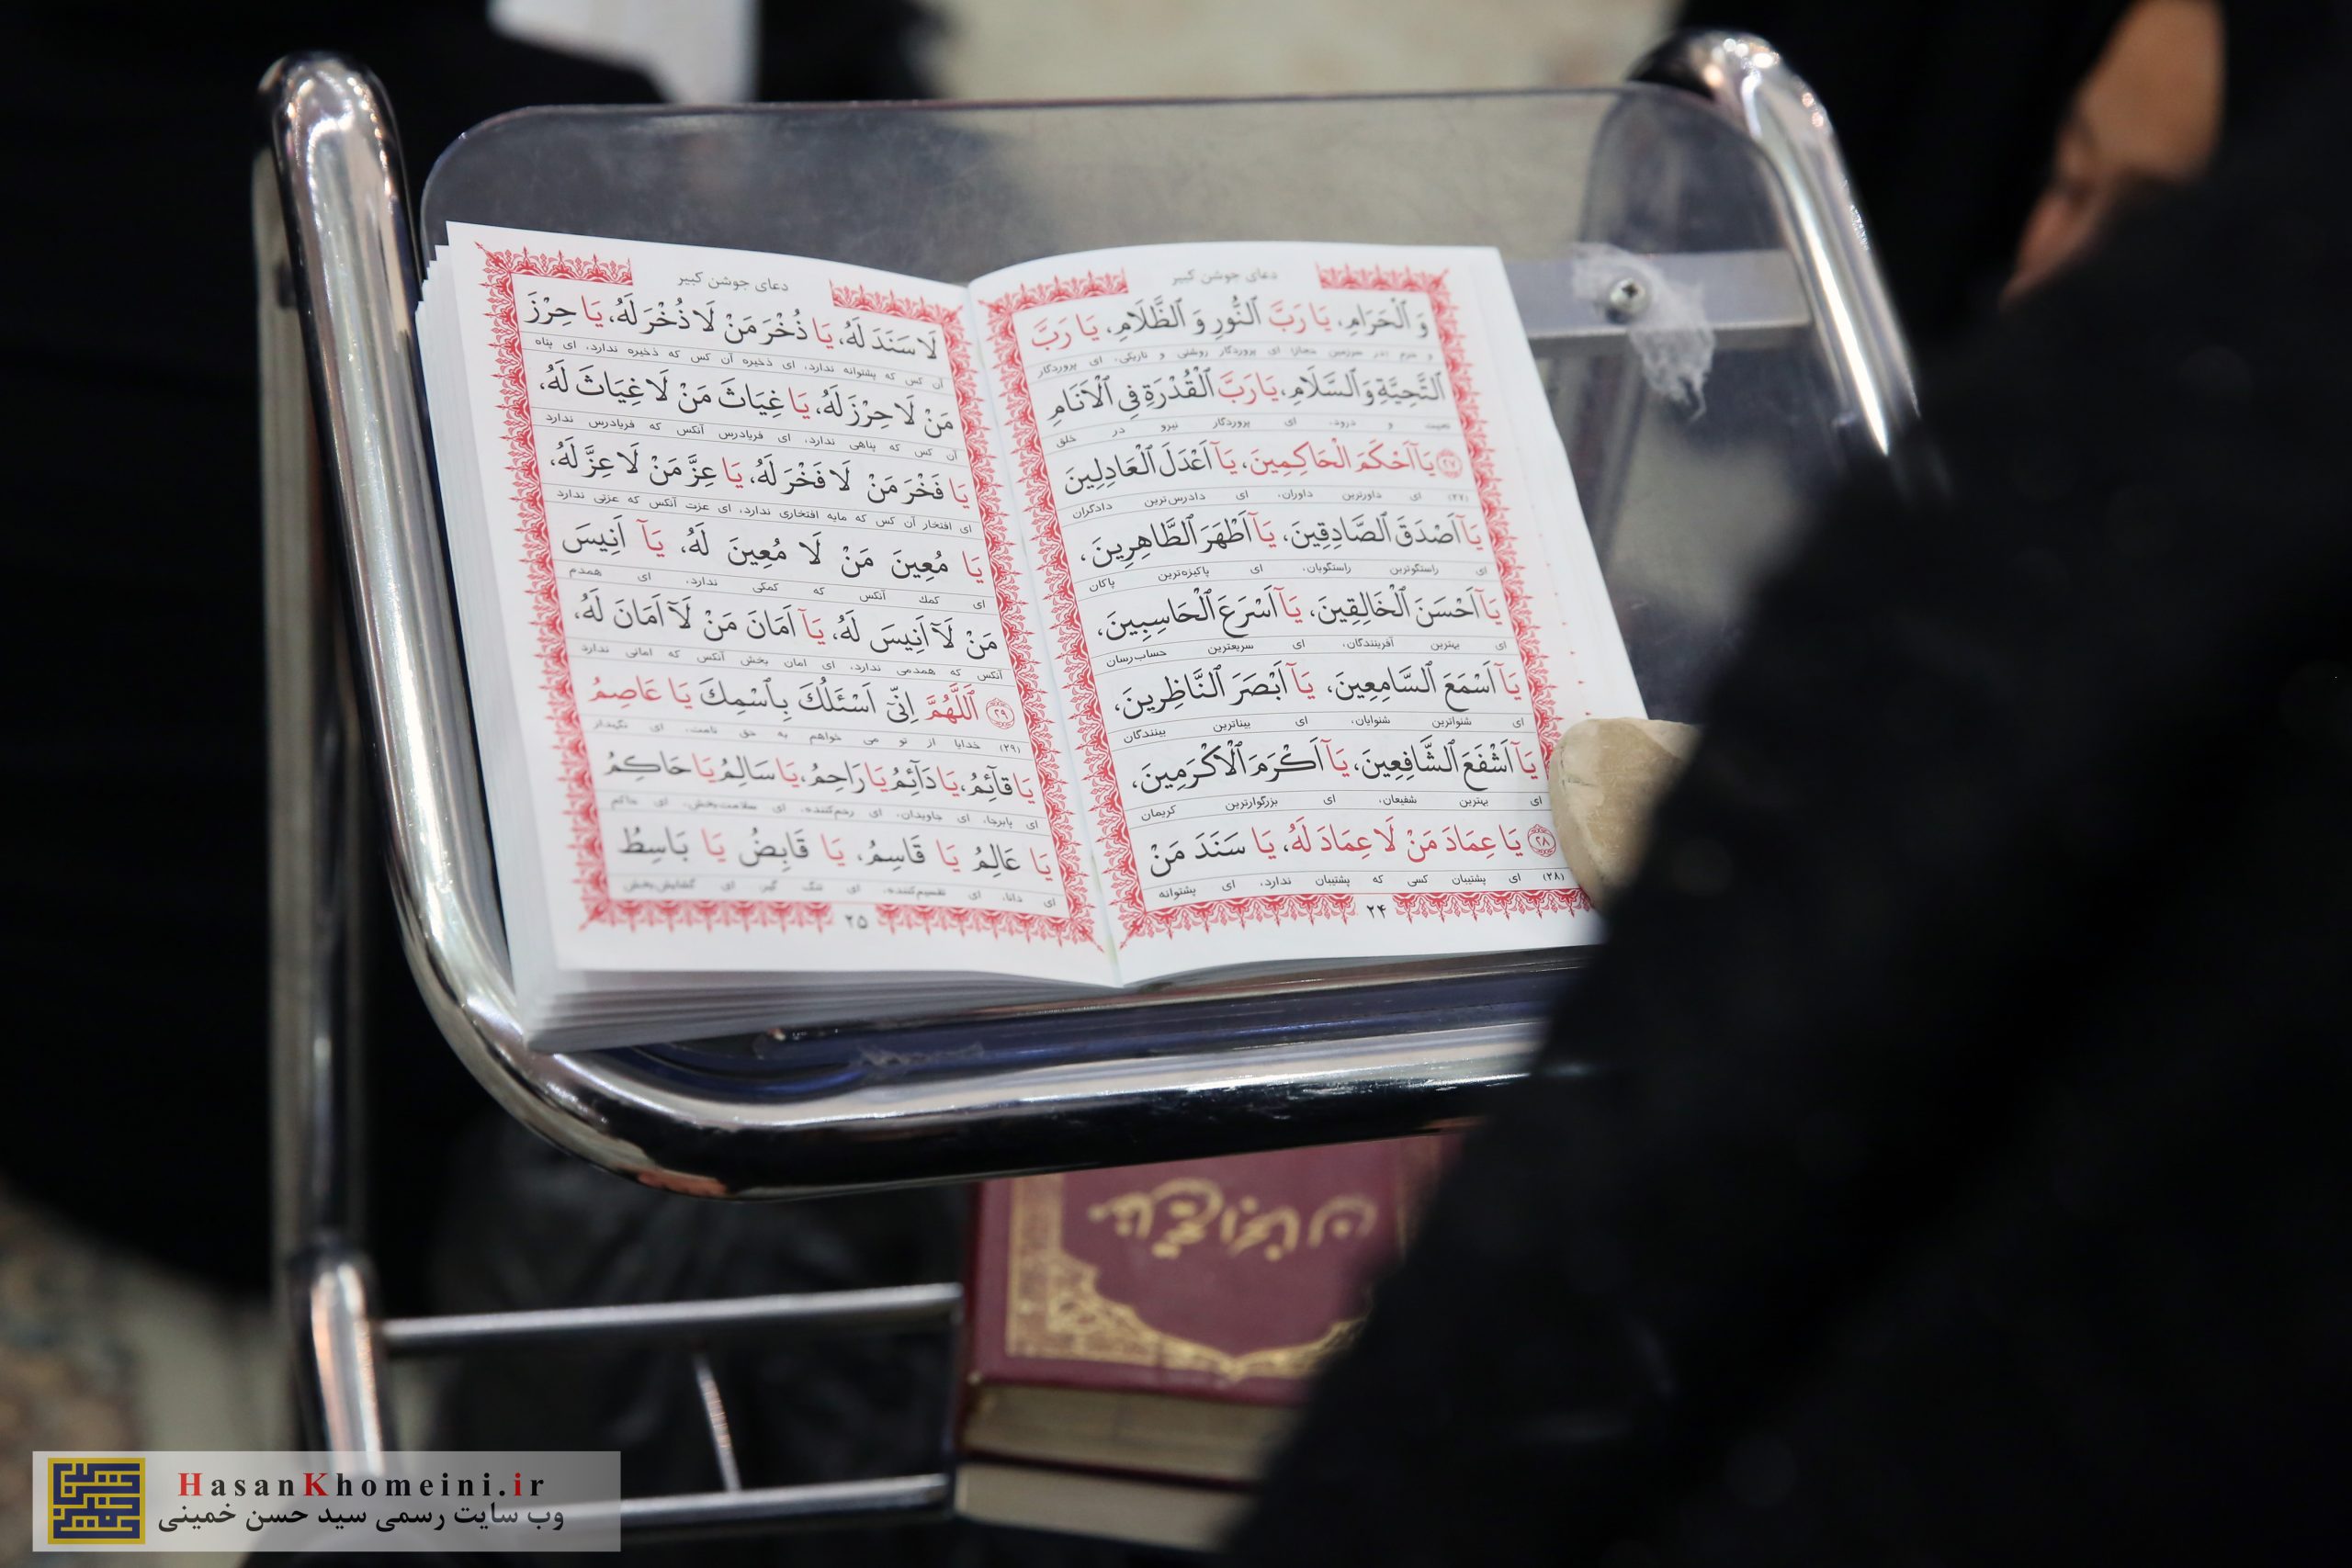 دعای جوشن کبیر
وَ الْحَرَامِ، یَا رَبَّ النُّورِ وَ الظَّلَامِ، یَا رَبَّ
و حرم ای پروردگار روشنی و تاریکی، ای پروردگار
التَّحِیَّةِ وَ السَّلَامِ، یَا رَبَّ الْقُدْرَةِ فِی الْاَنَامِ
تحیت و درود، ای پروردگار نیرو در خلق
۲۷ یَآ اَحْکَمَ الْحَاکِمِینَ، یَآ اَعْدَلَ الْعَادِلِینَ
(۲۷) ای داورترین داوران، ای دادرس‌ترین دادگران
یَآ اَصْدَقَ الصَّادِقِینَ، یَآ اَطْهَرَ الطَّاهِرِینَ،
ای راستگوترین راستگویان، ای پاکیزه‌ترین پاکان
یَآ اَحْسَنَ الْخَالِقِینَ، یَآ اَسْرَعَ الْحَاسِبِینَ،
ای بهترین آفرینندگان، ای سریعترین حساب‌رسان
یَآ اَسْمَعَ السَّامِعِینَ، یَآ اَبْصَرَ النَّاظِرِینَ،
ای شنواترین شنوایان، ای بیناترین بینندگان
یَآ اَشْفَعَ الشَّافِعِینَ، یَآ اَکْرَمَ الْاَکْرَمِینَ،
ای بهترین شفیعان، ای بزرگوارترین کریمان
۲۸ یَا عِمَادَ مَنْ لَا عِمَادَ لَهُ، یَا سَنَدَ مَنْ
(۲۸) ای پشتیبان کسی که پشتیبان ندارد، ای پشتوانه
۲۴
دعای جوشن کبیر
لَا سَنَدَ لَهُ، یَا ذُخْرَ مَنْ لَا ذُخْرَ لَهُ، یَا حِرْزَ
آن کس که پشتوانه ندارد، ای ذخیره آن کس که ذخیره ندارد، ای پناه
مَنْ لَا حِرْزَ لَهُ، یَا غِیَاثَ مَنْ لَا غِیَاثَ لَهُ،
آن کس که پناهی ندارد، ای فریادرس آنکس که فریادرس ندارد
یَا فَخْرَ مَنْ لَا فَخْرَ لَهُ، یَا عِزَّ مَنْ لَا عِزَّ لَهُ،
ای افتخار آن کس که مایه افتخاری ندارد، ای عزت آنکس که عزتی ندارد
یَا مُعِینَ مَنْ لَا مُعِینَ لَهُ، یَآ اَنِیسَ
ای کمک آنکس که کمکی ندارد، ای همدم
مَنْ لَآ اَنِیسَ لَهُ، یَآ اَمَانَ مَنْ لَآ اَمَانَ لَهُ،
آنکس که همدمی ندارد، ای امان بخش آنکس که امانی ندارد
۲۹ اَللَّهُمَّ اِنِّیٓ اَسْئَلُكَ بِاسْمِكَ یَا عَاصِمُ
(۲۹) خدایا از تو می خواهم به حق نامت، ای نگهدار
یَا قَآئِمُ، یَا دَآئِمُ یَا رَاحِمُ، یَا سَالِمُ یَا حَاکِمُ
ای پابرجا، ای جاویدان، ای رحم‌کننده، ای سلامت‌بخش، ای حاکم
یَا عَالِمُ یَا قَاسِمُ، یَا قَابِضُ یَا بَاسِطُ
ای دانا، ای تقسیم‌کننده، ای تنگ گیر، ای گشایش‌بخش
۲۵
مفاتیح الجنان
HasanKhomeini.ir
وب سایت رسمی سید حسن خمینی